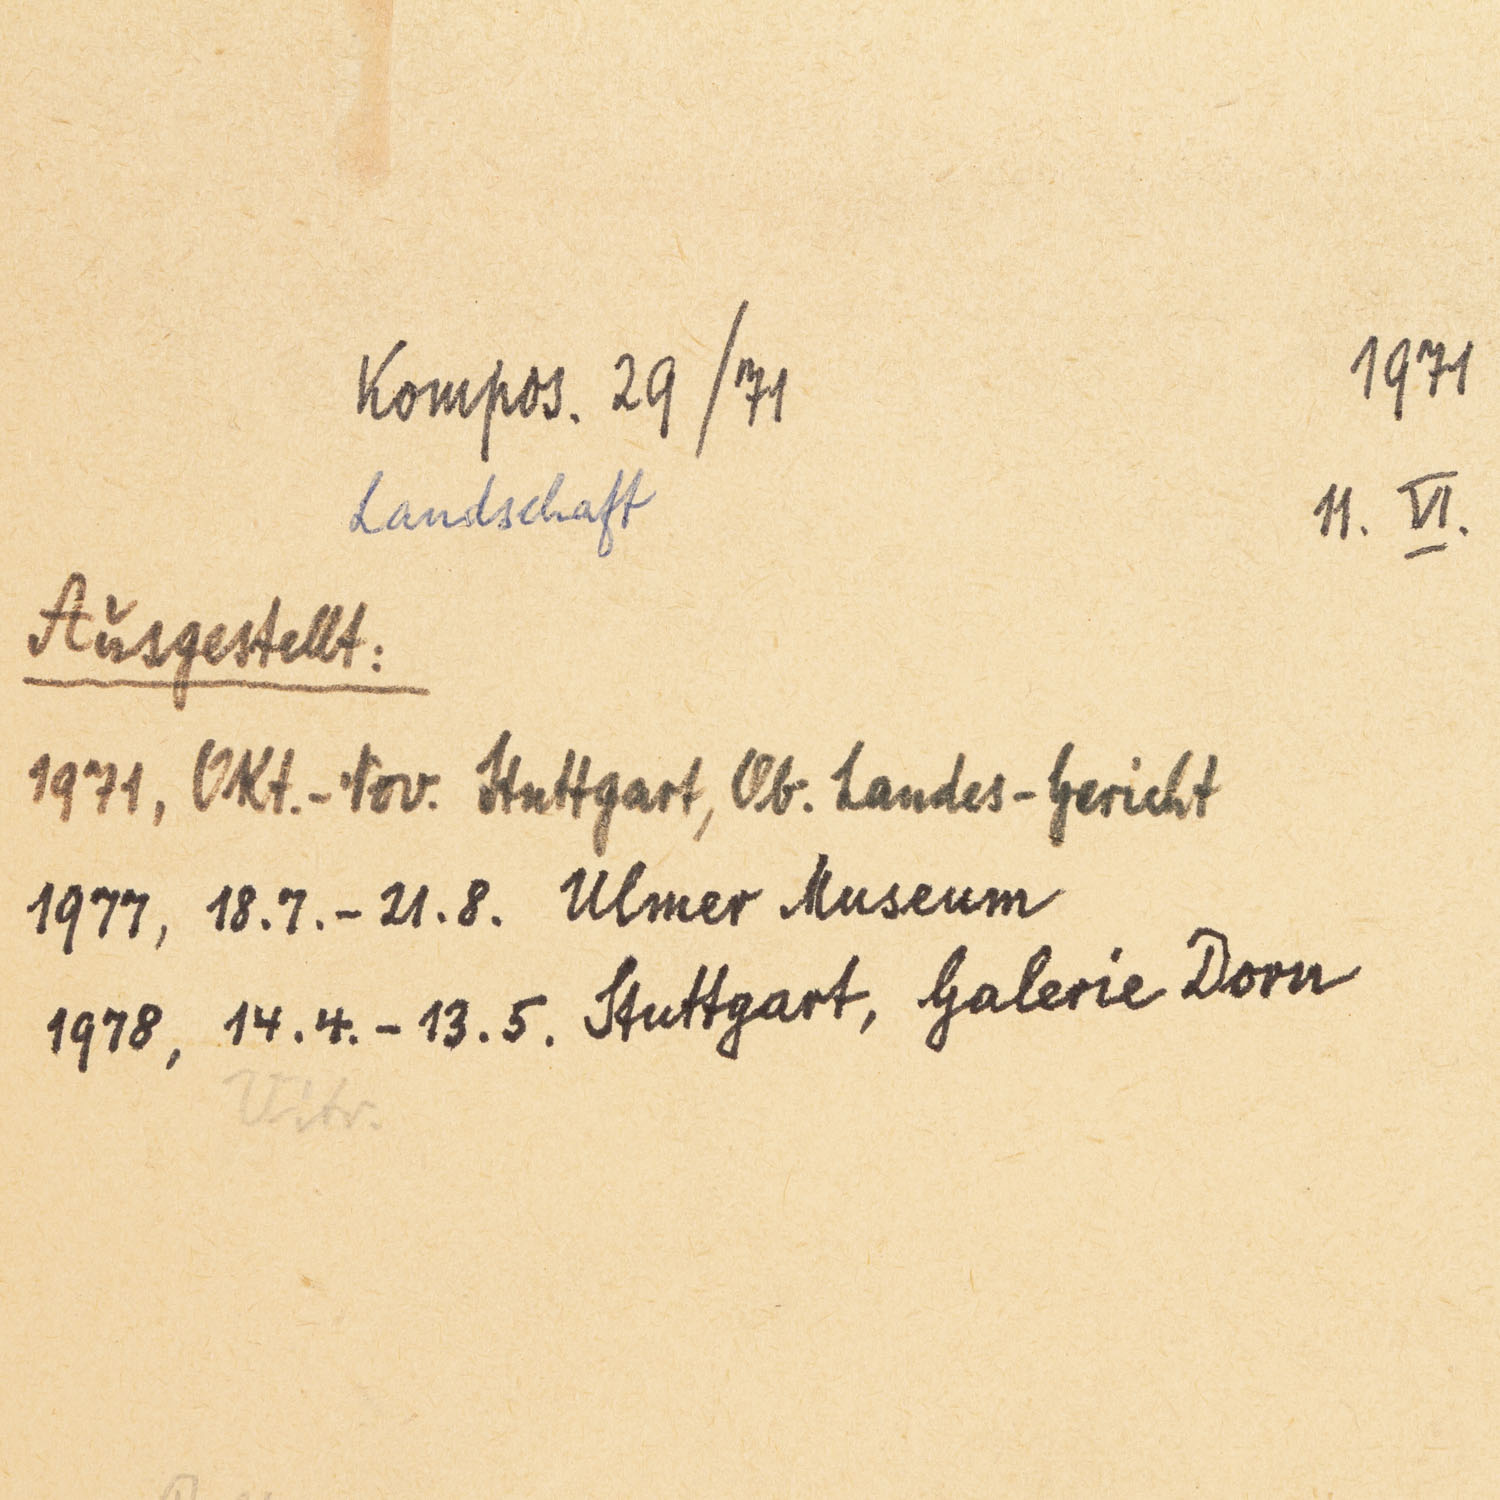 Kompos. 29/71 1971
Landschaft 11. VI.
Ausgestellt:
1971, Okt.-Nov. Stuttgart, Ob. Landes-Gericht
1977, 18.7.-21.8. Ulmer Museum
1978, 14.4.-13.5. Stuttgart, Galerie Dorn
Vitr.